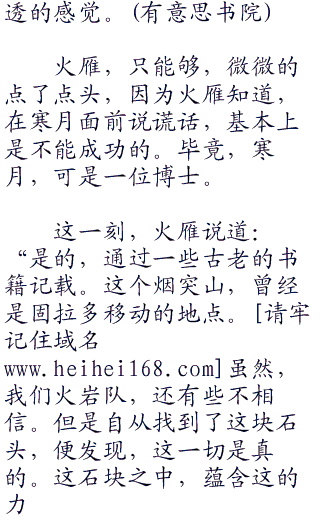 透的感觉。(有意思书院)
火雁，只能够，微微的
点了点头，因为火雁知道，
在寒月面前说谎话，基本上
是不能成功的。毕竟，寒
月，可是一位博士。
这一刻，火雁说道：
“是的，通过一些古老的书
籍记载。这个烟突山，曾经
是固拉多移动的地点。[请牢
记住域名
www.heihei168.com]虽然，
我们火岩队，还有些不相
信。但是自从找到了这块石
头，便发现，这一切是真
的。这石块之中，蕴含这的
力